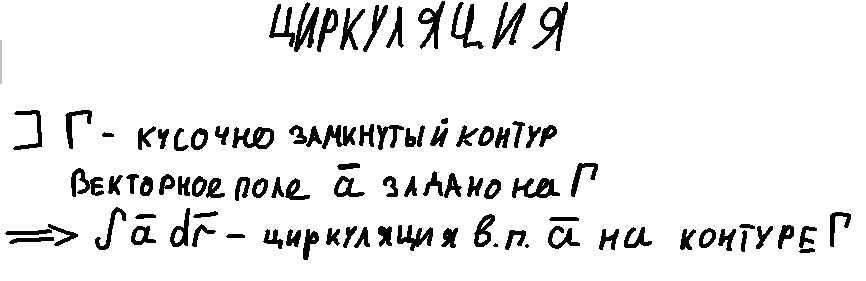 ЦИРКУЛЯЦИЯ
] Г - кусочно замкнутый контур
Векторное поле a̅ задано на Г
⟹ ∫ a̅ dr̅ - циркуляция в.п. a̅ на контуре Г